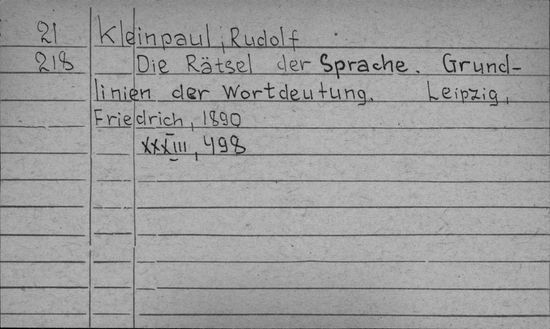 21 Kleinpaul, Rudolf
218 Die Rätsel der Sprache. Grund-
linien der Wortdeutung. Leipzig,
Friedrich, 1890
XXXIII, 498